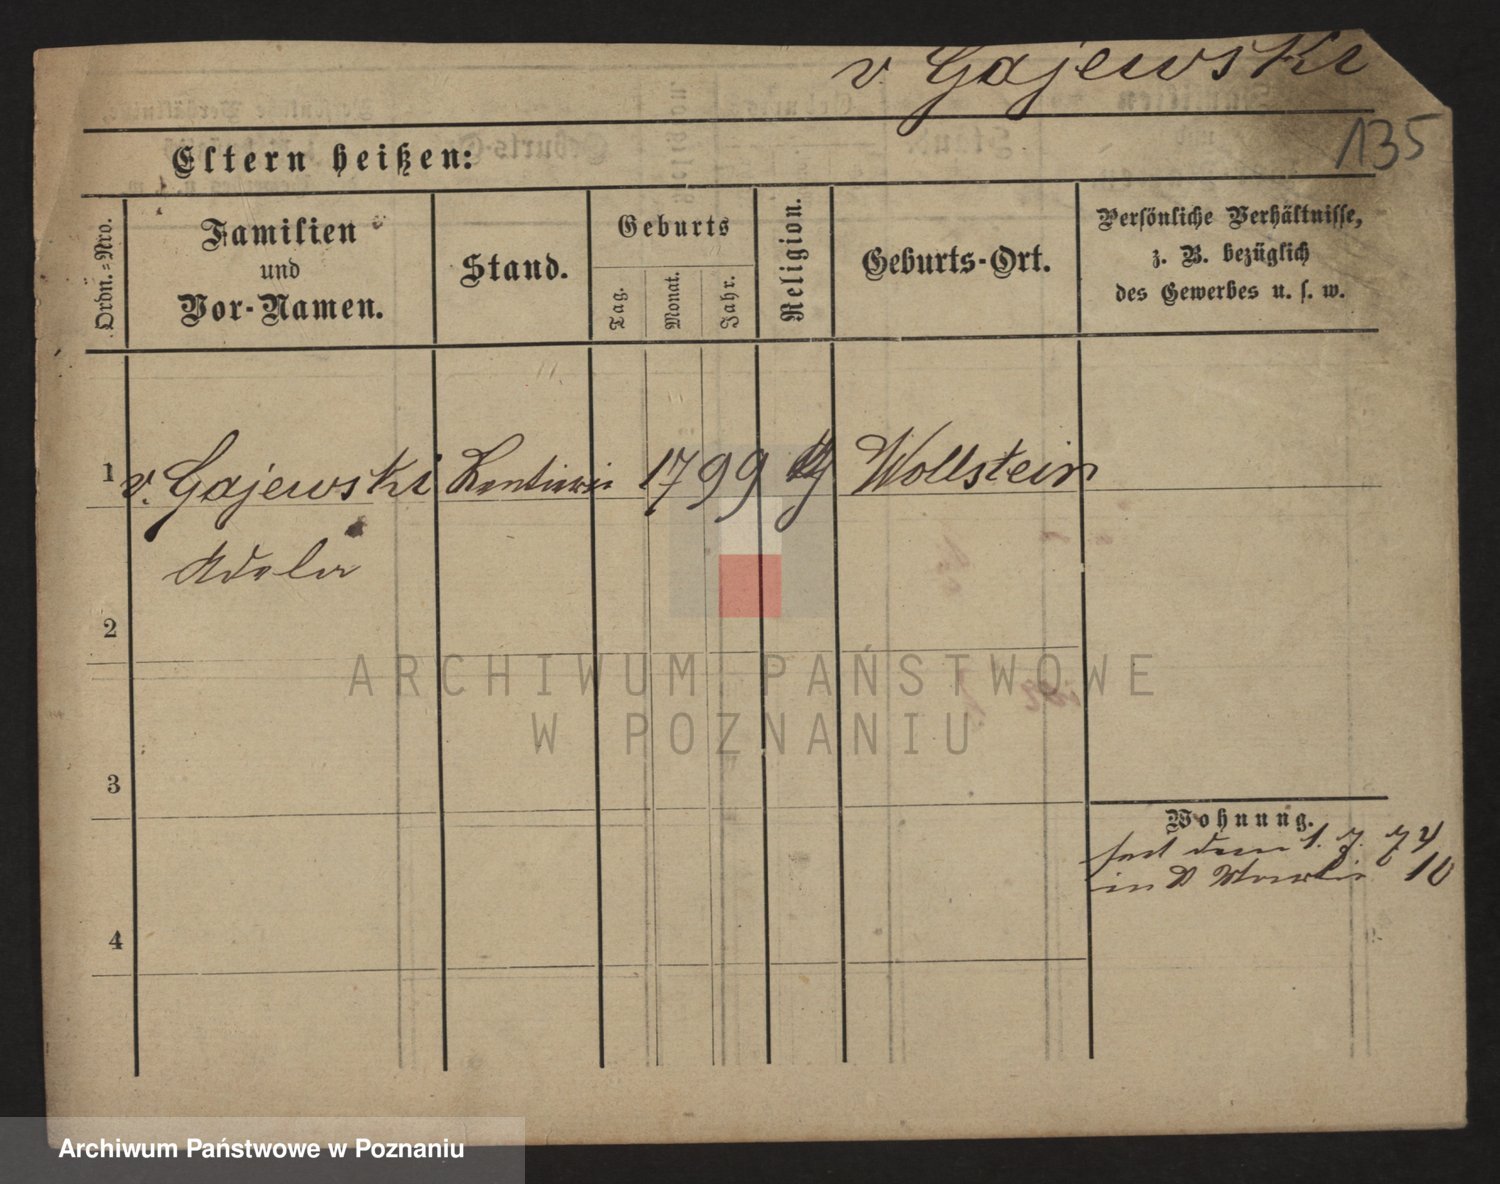 v. Gajewski
135
Eltern heißen:
Ordn.-Nro.
Familien
und
Vor-Namen.
Stand.
Geburts
Tag.
Monat.
Jahr.
Religion.
Geburts-Ort.
Persönliche Verhältnisse,
z. B. bezüglich
des Gewerbes u. s. w.
1
v. Gajewski
1799
Wollstein
2
3
4
Wohnung.
seit dem 1. 7. 74
in 10
ARCHIWUM PAŃSTWOWE
W POZNANIU
Archiwum Państwowe w Poznaniu